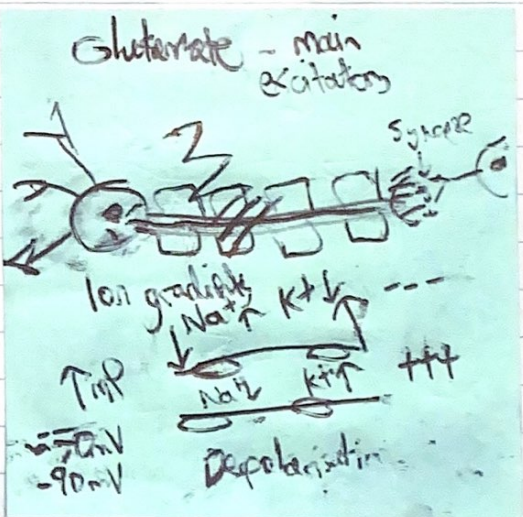 Glutamate - main
excitatory
Synapse
Ion gradients
Na+↑ K+↓ ---
↑MP Na+↓ K+↑ +++
-70mV
-90mV Depolarisation